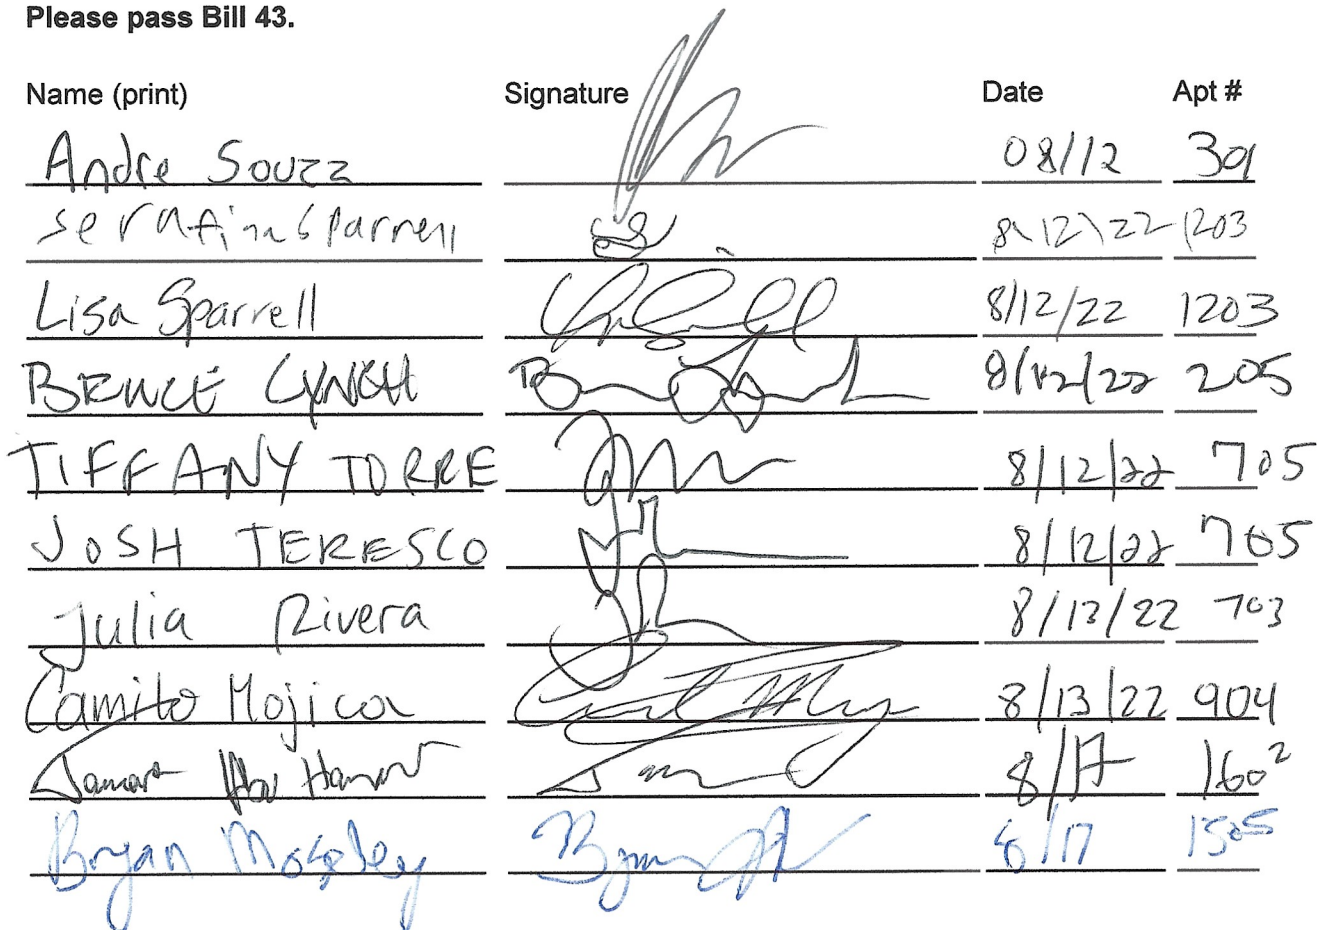 Please pass Bill 43.
Name (print) Signature Date Apt #
Andre Souza 08/12 39
Serafina Sparrell 8\12\22 1203
Lisa Sparrell 8/12/22 1203
BRUCE LYNCH 8/12/22 205
TIFFANY TORRE 8/12/22 705
JOSH TERESCO 8/12/22 705
Julia Rivera 8/12/22 703
Camilo Mojica 8/13/22 904
8/17 1602
Bryan Moseley 8/17 1505